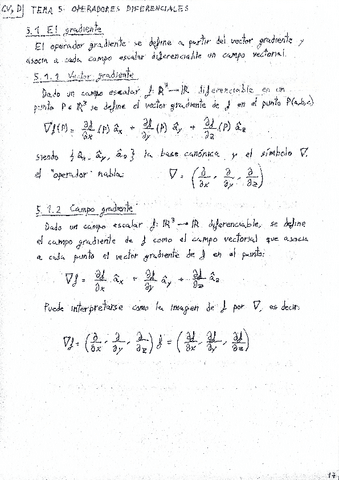 CV, D] TEMA 5. OPERADORES DIFERENCIALES
5.1 El gradiente
El operador gradiente se define a partir del vector gradiente y
asocia a cada campo escalar diferenciable un campo vectorial.
5.1.1 Vector gradiente
Dado un campo escalar f: ℝ³ → ℝ diferenciable en un
punto P ∈ ℝ³ se define el vector gradiente de f en el punto P(a,b,c)
∇f(P) = ∂f/∂x (P) âx + ∂f/∂y (P) ây + ∂f/∂z (P) âz
siendo {âx, ây, âz} la base canónica y el símbolo ∇,
el "operador" nabla: ∇ = (∂/∂x, ∂/∂y, ∂/∂z)
5.1.2 Campo gradiente
Dado un campo escalar f: ℝ³ → ℝ diferenciable, se define
el campo gradiente de f como el campo vectorial que asocia
a cada punto el vector gradiente de f en el punto:
∇f = ∂f/∂x âx + ∂f/∂y ây + ∂f/∂z âz
Puede interpretarse como la imagen de f por ∇, es decir:
∇f = (∂/∂x, ∂/∂y, ∂/∂z) f = (∂f/∂x, ∂f/∂y, ∂f/∂z)